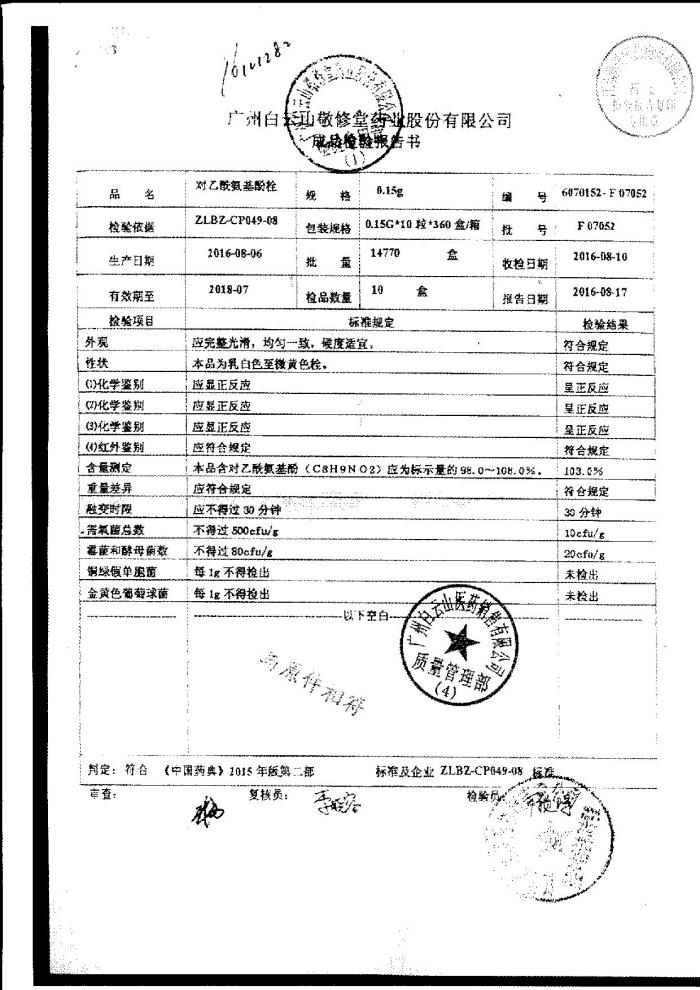 广州白云山敬修堂药业股份有限公司
成品检验报告书
(1)
品 名 对乙酰氨基酚栓 规 格 0.15g 编 号 6070152-F07052
检验依据 ZLBZ-CP049-08 包装规格 0.15G*10粒*360盒/箱 批 号 F07052
生产日期 2016-08-06 批 量 14770 盒 收检日期 2016-08-10
有效期至 2018-07 检品数量 10 盒 报告日期 2016-08-17
检验项目 标准规定 检验结果
外观 应完整光滑，均匀一致，硬度适宜。 符合规定
性状 本品为乳白色至微黄色栓。 符合规定
(1)化学鉴别 应显正反应 呈正反应
(2)化学鉴别 应显正反应 呈正反应
(3)化学鉴别 应显正反应 呈正反应
(4)红外鉴别 应符合规定 符合规定
含量测定 本品含对乙酰氨基酚（C8H9NO2）应为标示量的98.0～108.0%。 103.0%
重量差异 应符合规定 符合规定
融变时限 应不得过30分钟 30分钟
需氧菌总数 不得过500cfu/g 10cfu/g
霉菌和酵母菌数 不得过80cfu/g 20cfu/g
铜绿假单胞菌 每1g不得检出 未检出
金黄色葡萄球菌 每1g不得检出 未检出
以下空白
广州白云山医药销售有限公司
质量管理部
(4)
与原件相符
判定：符合 《中国药典》2015年版第二部 标准及企业 ZLBZ-CP049-08 标准
审查： 复核员： 检验员